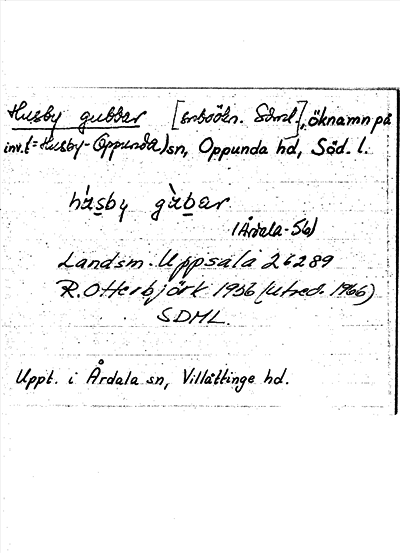 Husby gubbar [inbökn. Sörml.], öknamn på
inv. i Husby-Oppunda sn, Oppunda hd, Söd. l.
húsby gùbar
(Årdala-56)
Landsm. Uppsala 26289
R. Otterbjörk 1956 (utred. 1966)
SDML.
Uppt. i Årdala sn, Villåttinge hd.